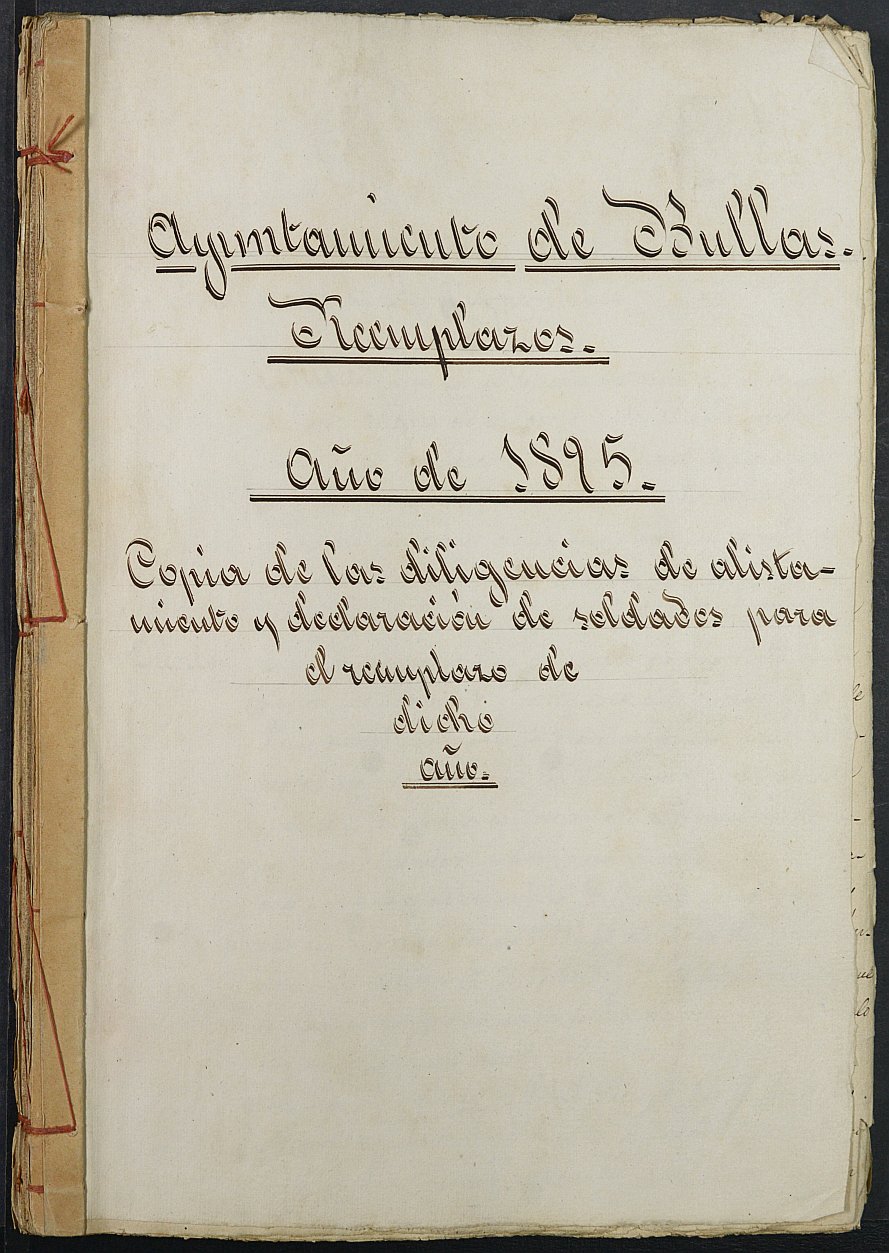 Ayuntamiento de Bullas.
Reemplazos.
Año de 1895.
Copia de las diligencias de alista-
miento y declaración de soldados para
el reemplazo de
dicho
año.